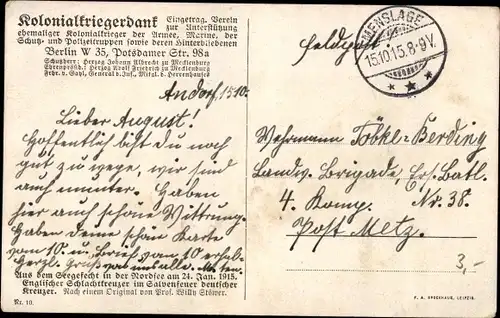 Kolonialkriegerdank Eingetrag. Verein
zur Unterstützung
ehemaliger Kolonialkrieger der Armee, Marine, der
Schutz- und Polizeitruppen sowie deren Hinterbliebenen
Berlin W 35, Potsdamer Str. 98a
Schutzherr: Herzog Johann Albrecht zu Mecklenburg
Ehrenpräsid.: Herzog Adolf Friedrich zu Mecklenburg
Frhr. v. Gayl, General d. Inf., Mitgl. d. Herrenhauses
Feldpost
MENSLAGE
15.10.15.8-9V.
Andorf, 15.10.
Lieber August!
Hoffentlich bist du noch
gut zu wege, wir sind
auch munter. Haben
hier auch schöne Wittrung.
Haben deine schön Karte
vom 10. u. Brief vom 10 erhal-
Herzl. Gruß von uns alle. ten.
Wehrmann Berding
Landw. Brigade, Ers. Batl.
4. Komp. Nr. 38.
Post Metz.
3,-
Aus dem Seegefecht in der Nordsee am 24. Jan. 1915.
Englischer Schlachtkreuzer im Salvenfeuer deutscher
Kreuzer. Nach einem Original von Prof. Willy Stöwer.
Nr. 10.
F. A. BROCKHAUS, LEIPZIG.